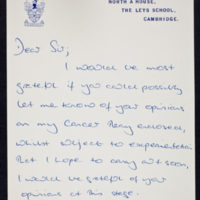 NORTH A HOUSE,
THE LEYS SCHOOL,
CAMBRIDGE.
Dear Sir,
I would be most
grateful if you could possibly
let me know of your opinions
on my Cancer Theory enclosed,
whilst subject to experimentation
that I hope to carry out soon,
I would be grateful of your
opinions at this stage.